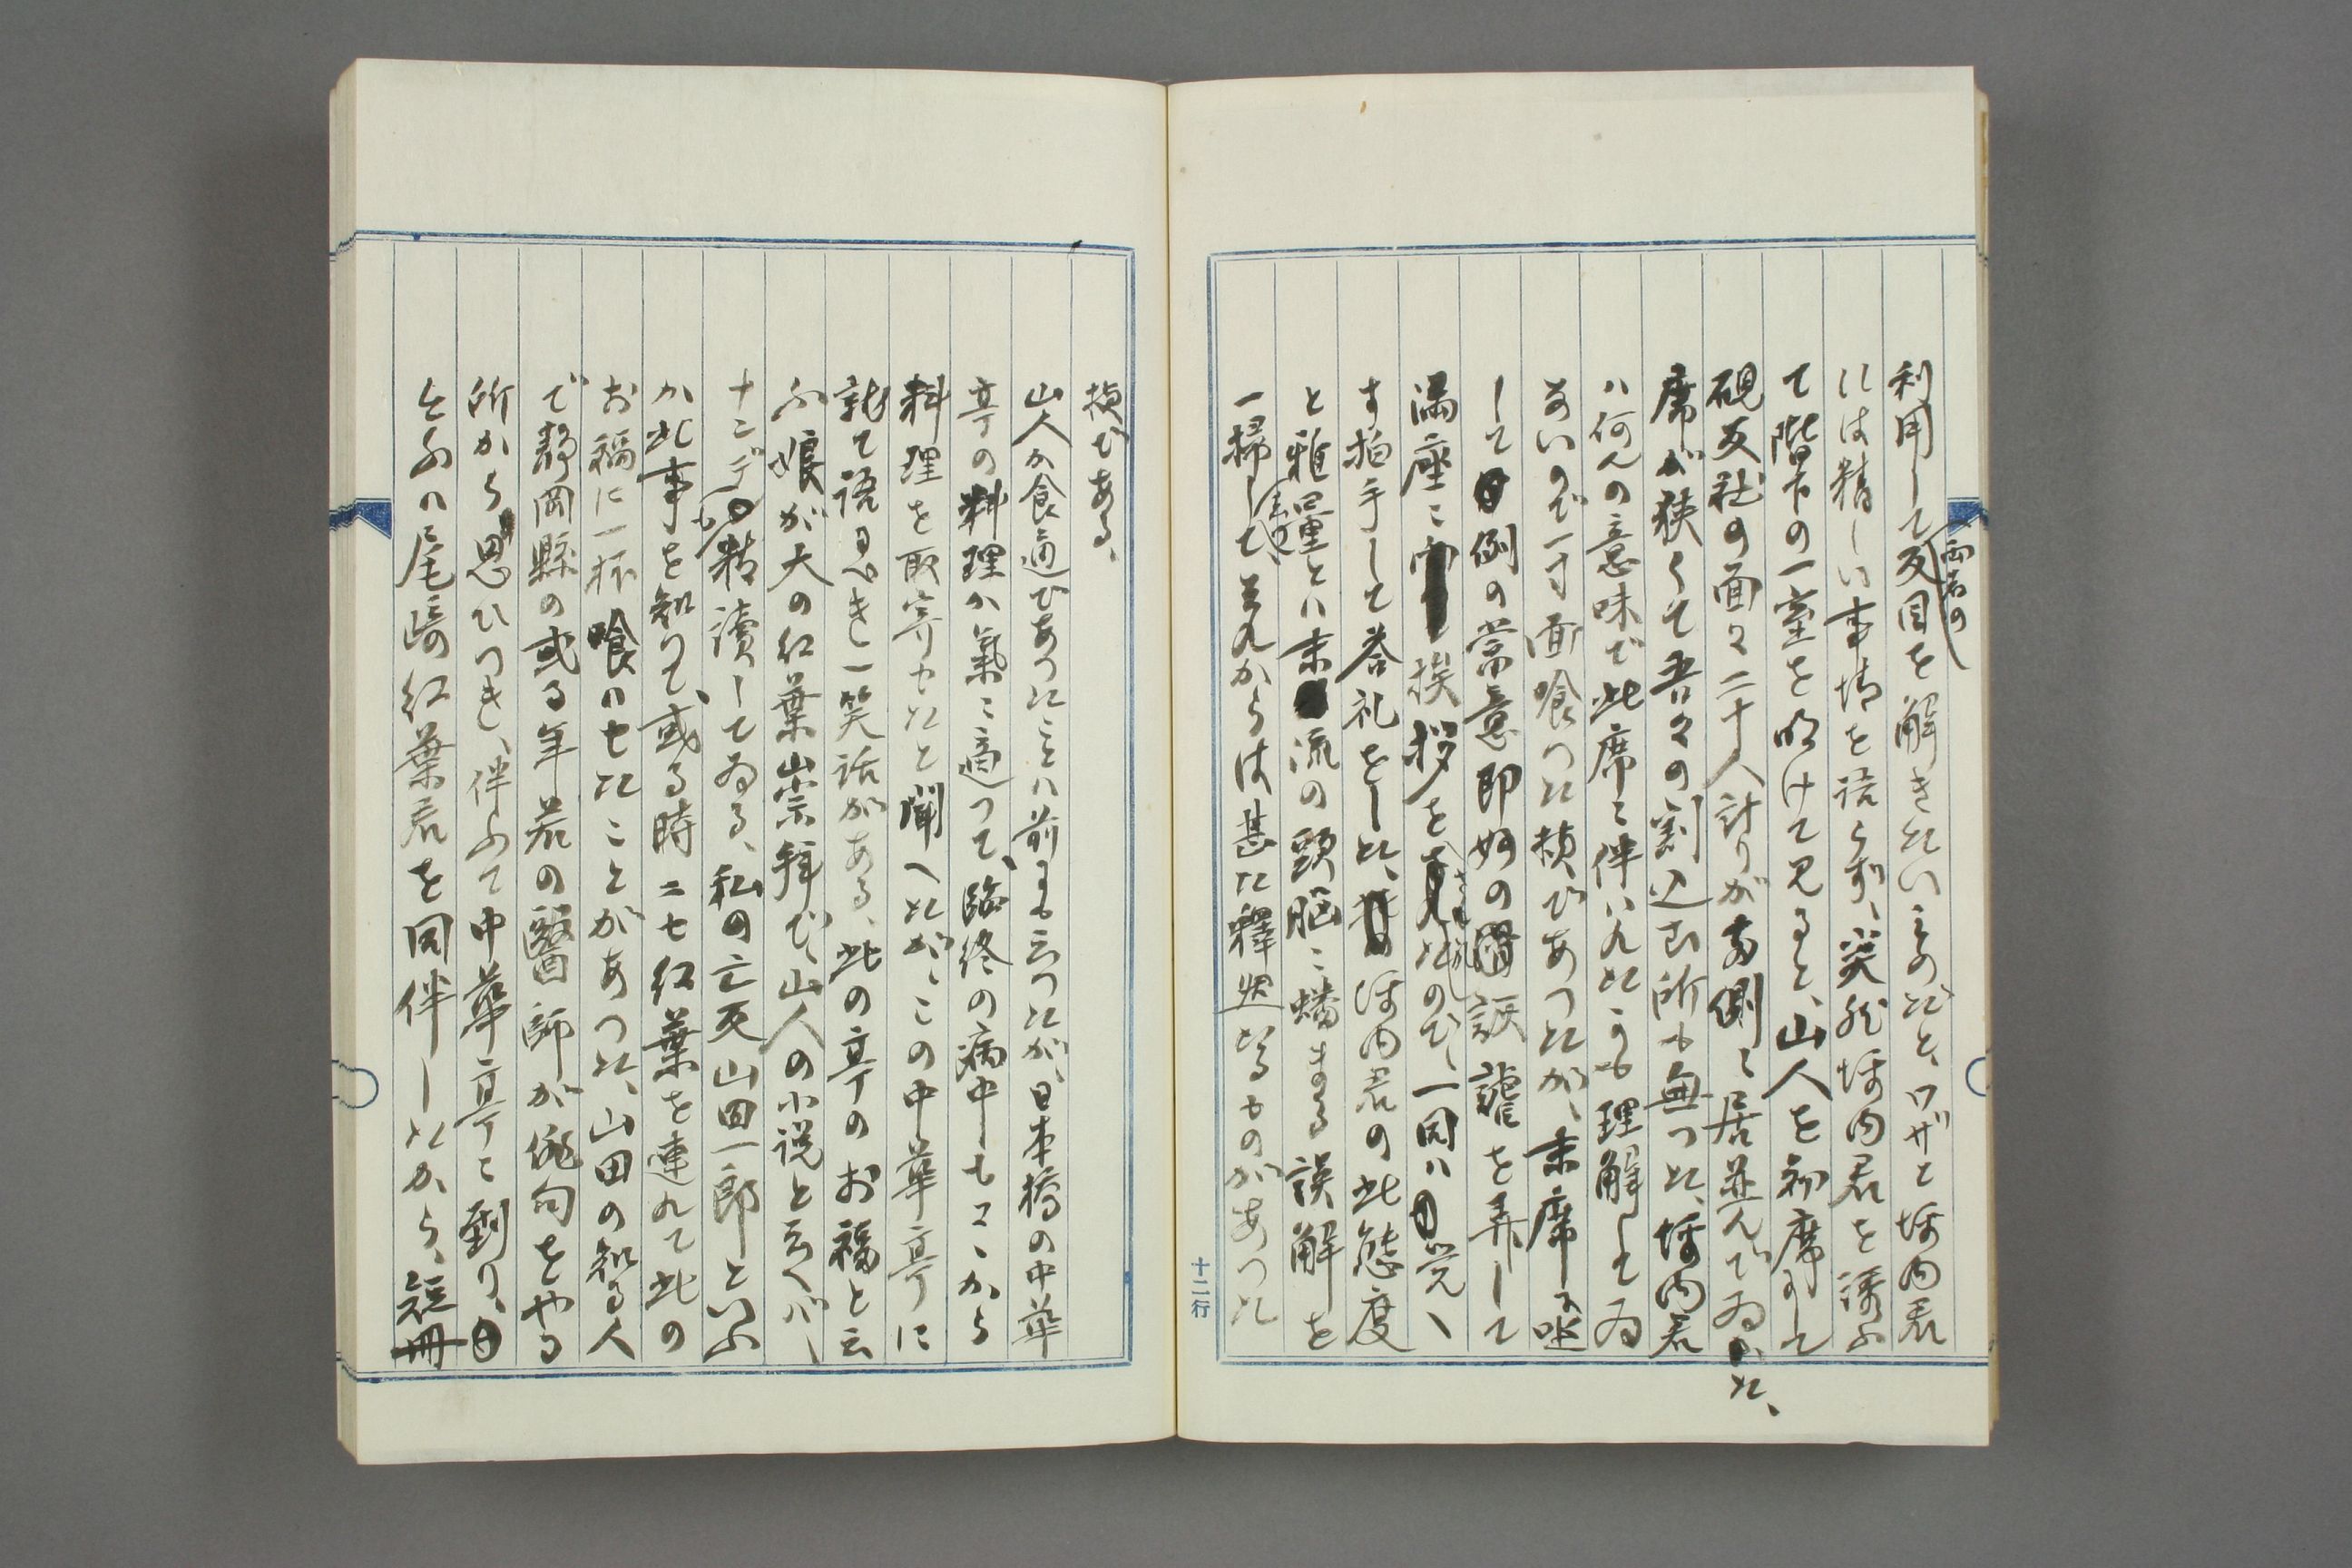 利用して両者の反目を解きたいものだと、ワザと坪内君
には精しい事情を語らず、突然坪内君を誘ふ
て階下の一室を明けて見ると、山人を初席にして
硯友社の面々二十人計りが両側に居並んでゐた、
席が狭くて吾々の割込む所も無つた、坪内君
ハ何んの意味で此席に伴ハれたかも理解してゐ
ないので一寸面喰つた様であつたが、末席に
して例の当意即妙の諧謔を弄して
満座に挨拶をされたので、一同ハ覚へ
す拍手して答礼をした、坪内君の此態度
と雅量とハ末流の頭脳に蟠まる誤解を
一掃して其れからは甚た釋然たるものがあつた
十二行
様である、
山人か食通であつたことハ前にも云つたが、日本橋の中華
亭の料理か氣に適つて、臨終の病中もここから
料理を取寄せたと聞へたが、この中華亭に
就て語るべき一笑話がある、此の亭のお福と云
ふ娘が大の紅葉山崇拝で、山人の小説と云へバ、
ナンデも精讀してゐる、私の亡友山田一郎といふ
か此事を知りて、或る時ニセ紅葉を連れて此の
お福に一杯喰ハせたことがあつた、山田の知る人
で静岡縣の或る年若の醫師が俳句をやる
所から思ひつき、伴ふて中華亭に到り、
今夕ハ尾崎紅葉君を同伴したから、短冊